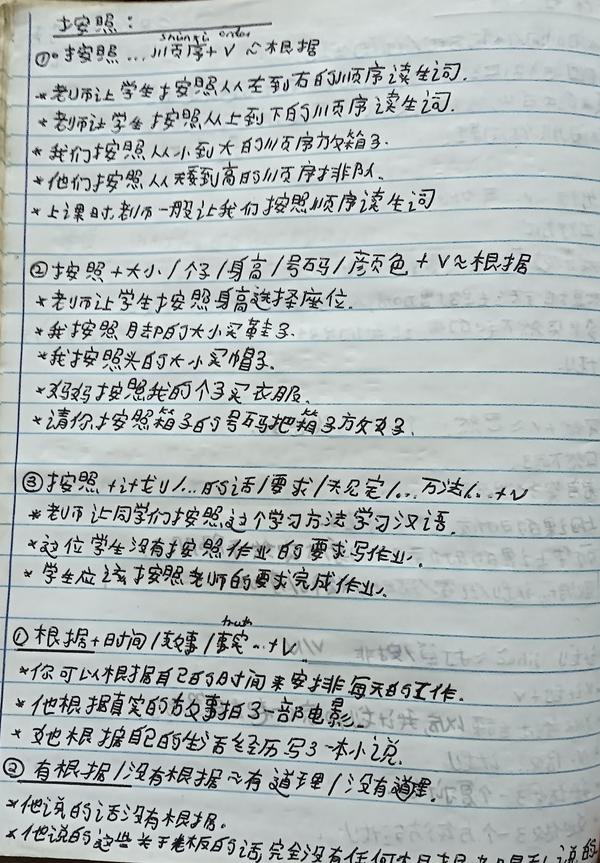 按照：
shùnxì order
①• 按照...顺序+V ≈根据
*老师让学生按照从左到右的顺序读生词.
*老师让学生按照从上到下的顺序读生词.
*我们按照从小到大的顺序放箱子.
*他们按照从矮到高的顺序排队.
*上课时老师一般让我们按照顺序读生词
②按照+大小/个子/身高/号码/颜色+V≈根据
*老师让学生按照身高选择座位.
*我按照脚的大小买鞋子.
*我按照头的大小买帽子.
*妈妈按照我的个子买衣服.
*请你按照箱子的号码把箱子放好.
③按照+计划/...的话/要求/规定/...方法/...+V
*老师让同学们按照这个学习方法学习汉语.
*这位学生没有按照作业的要求写作业.
*学生应该按照老师的要求完成作业.
truth
①根据+时间/故事/事实...+V
*你可以根据自己的时间来安排每天的工作.
*他根据真实的故事拍了一部电影.
*她根据自己的生活经历写了一本小说.
②有根据/没有根据≈有道理/没有道理
*他说的话没有根据.
*他说的这些关于老板的话完全没有任何